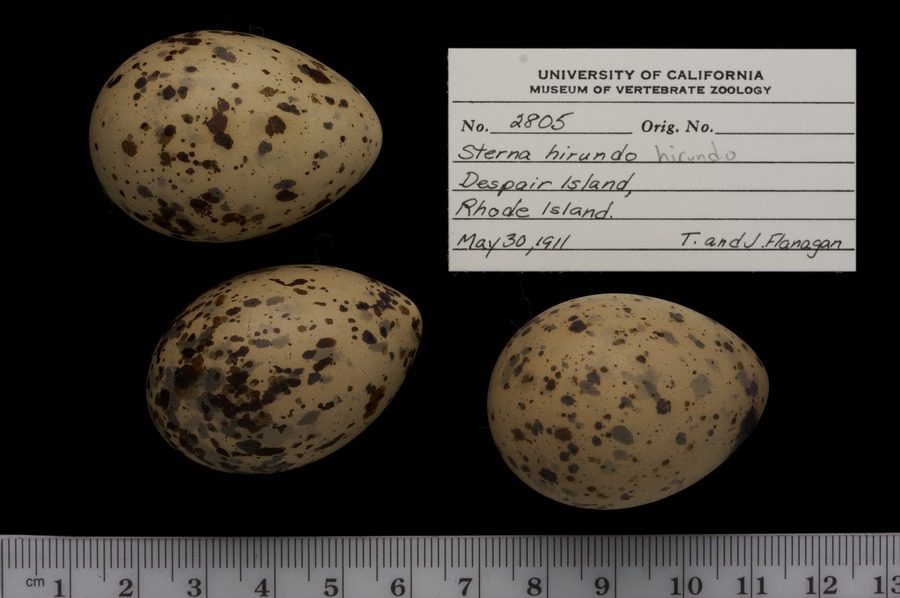 UNIVERSITY OF CALIFORNIA
MUSEUM OF VERTEBRATE ZOOLOGY
No. 2805 Orig. No.
Sterna hirundo hirundo
Despair Island,
Rhode Island.
May 30, 1911 T. and J. Flanagan
cm 1 2 3 4 5 6 7 8 9 10 11 12 13